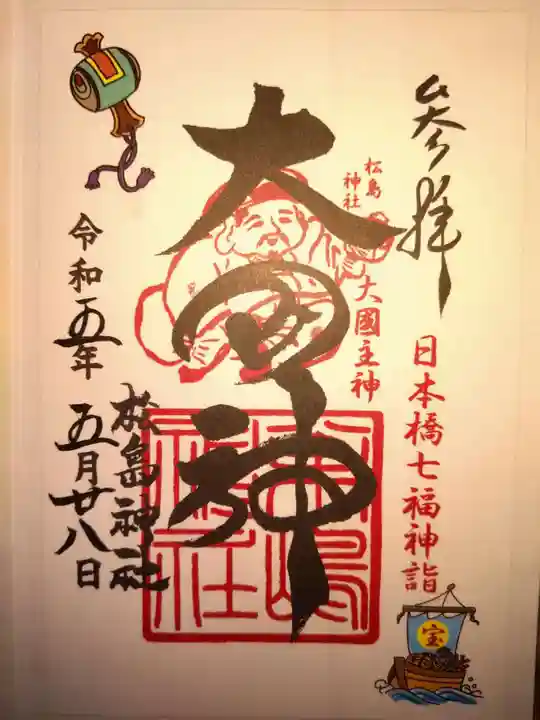 参拝
日本橋七福神詣
松島神社
大國主神
大国神
松島神社
令和五年
五月廿八日
松島神社
宝